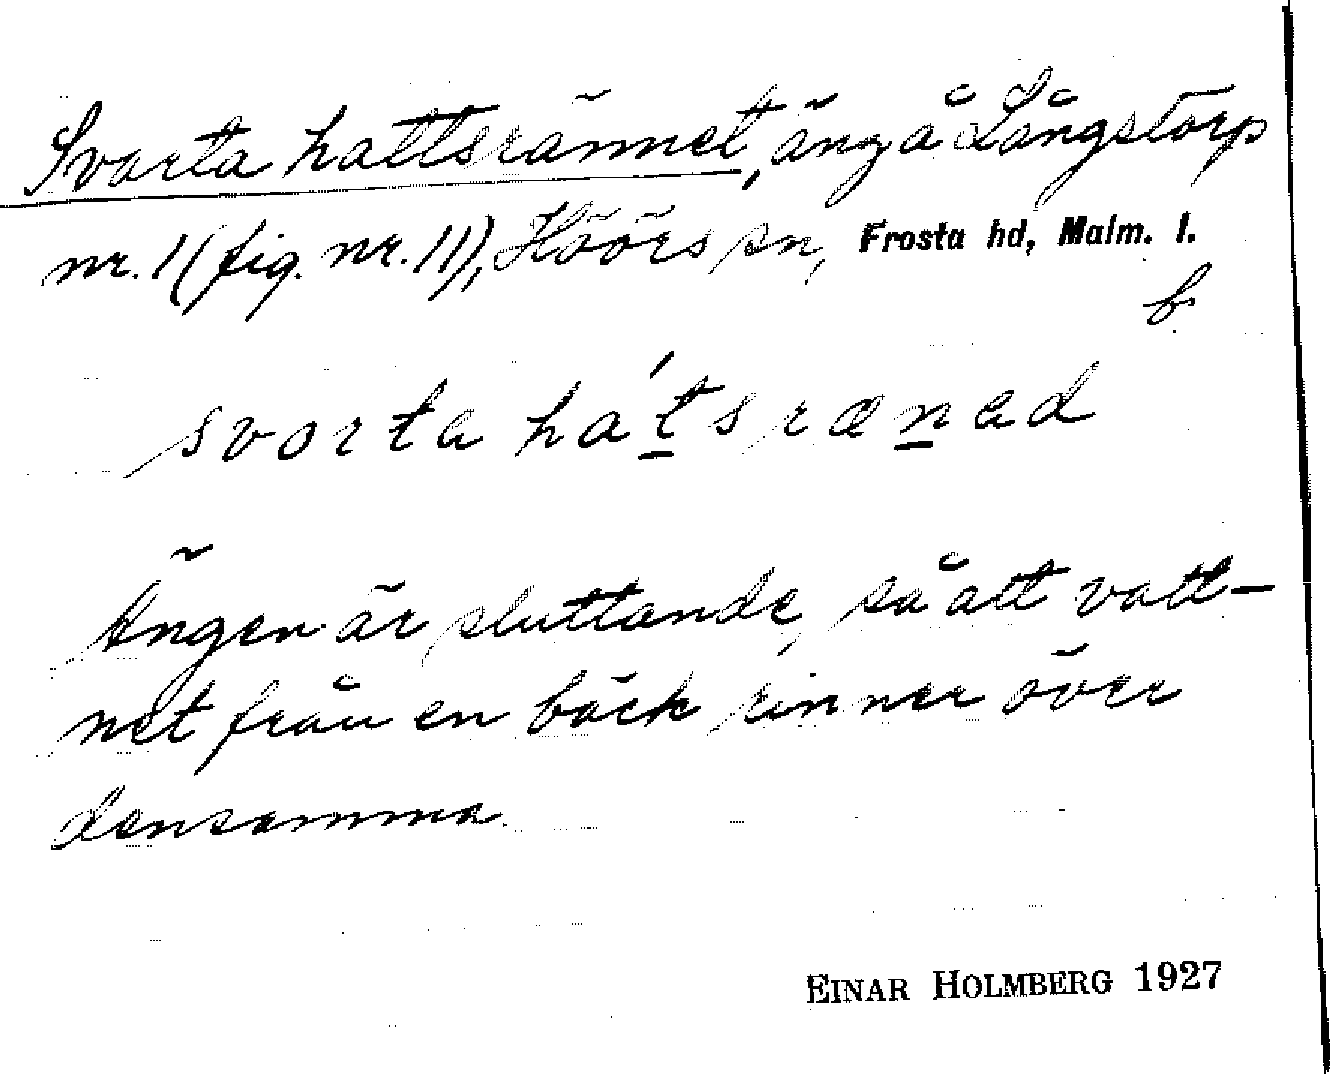 Svarta hattsrännet, äng å Långstorp
nr. 1 (fig. nr. 11), Höörs sn, Frosta hd, Malm. l.
b
svorta hát̲s ræn̲ad
Ängen är sluttande, så att vatt-
net från en bäck rinner över
densamma.
EINAR HOLMBERG 1927